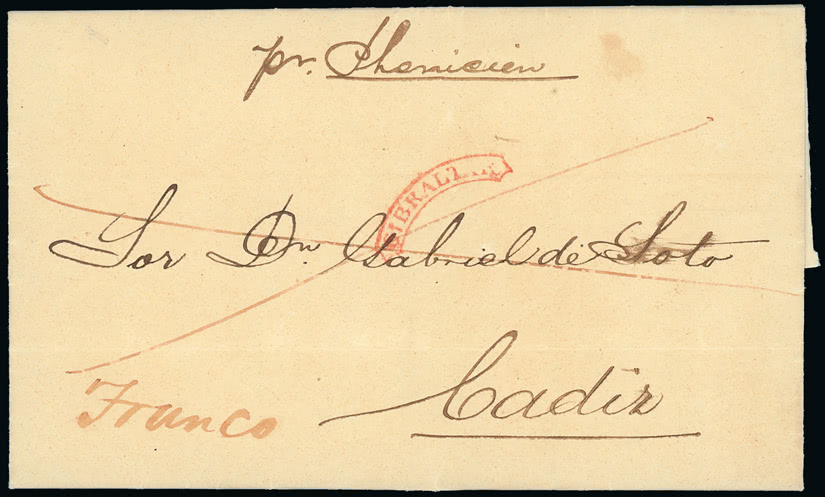 pr. Phenicien
GIBRALTAR
Sor Dn Gabriel de Soto
Franco
Cadiz